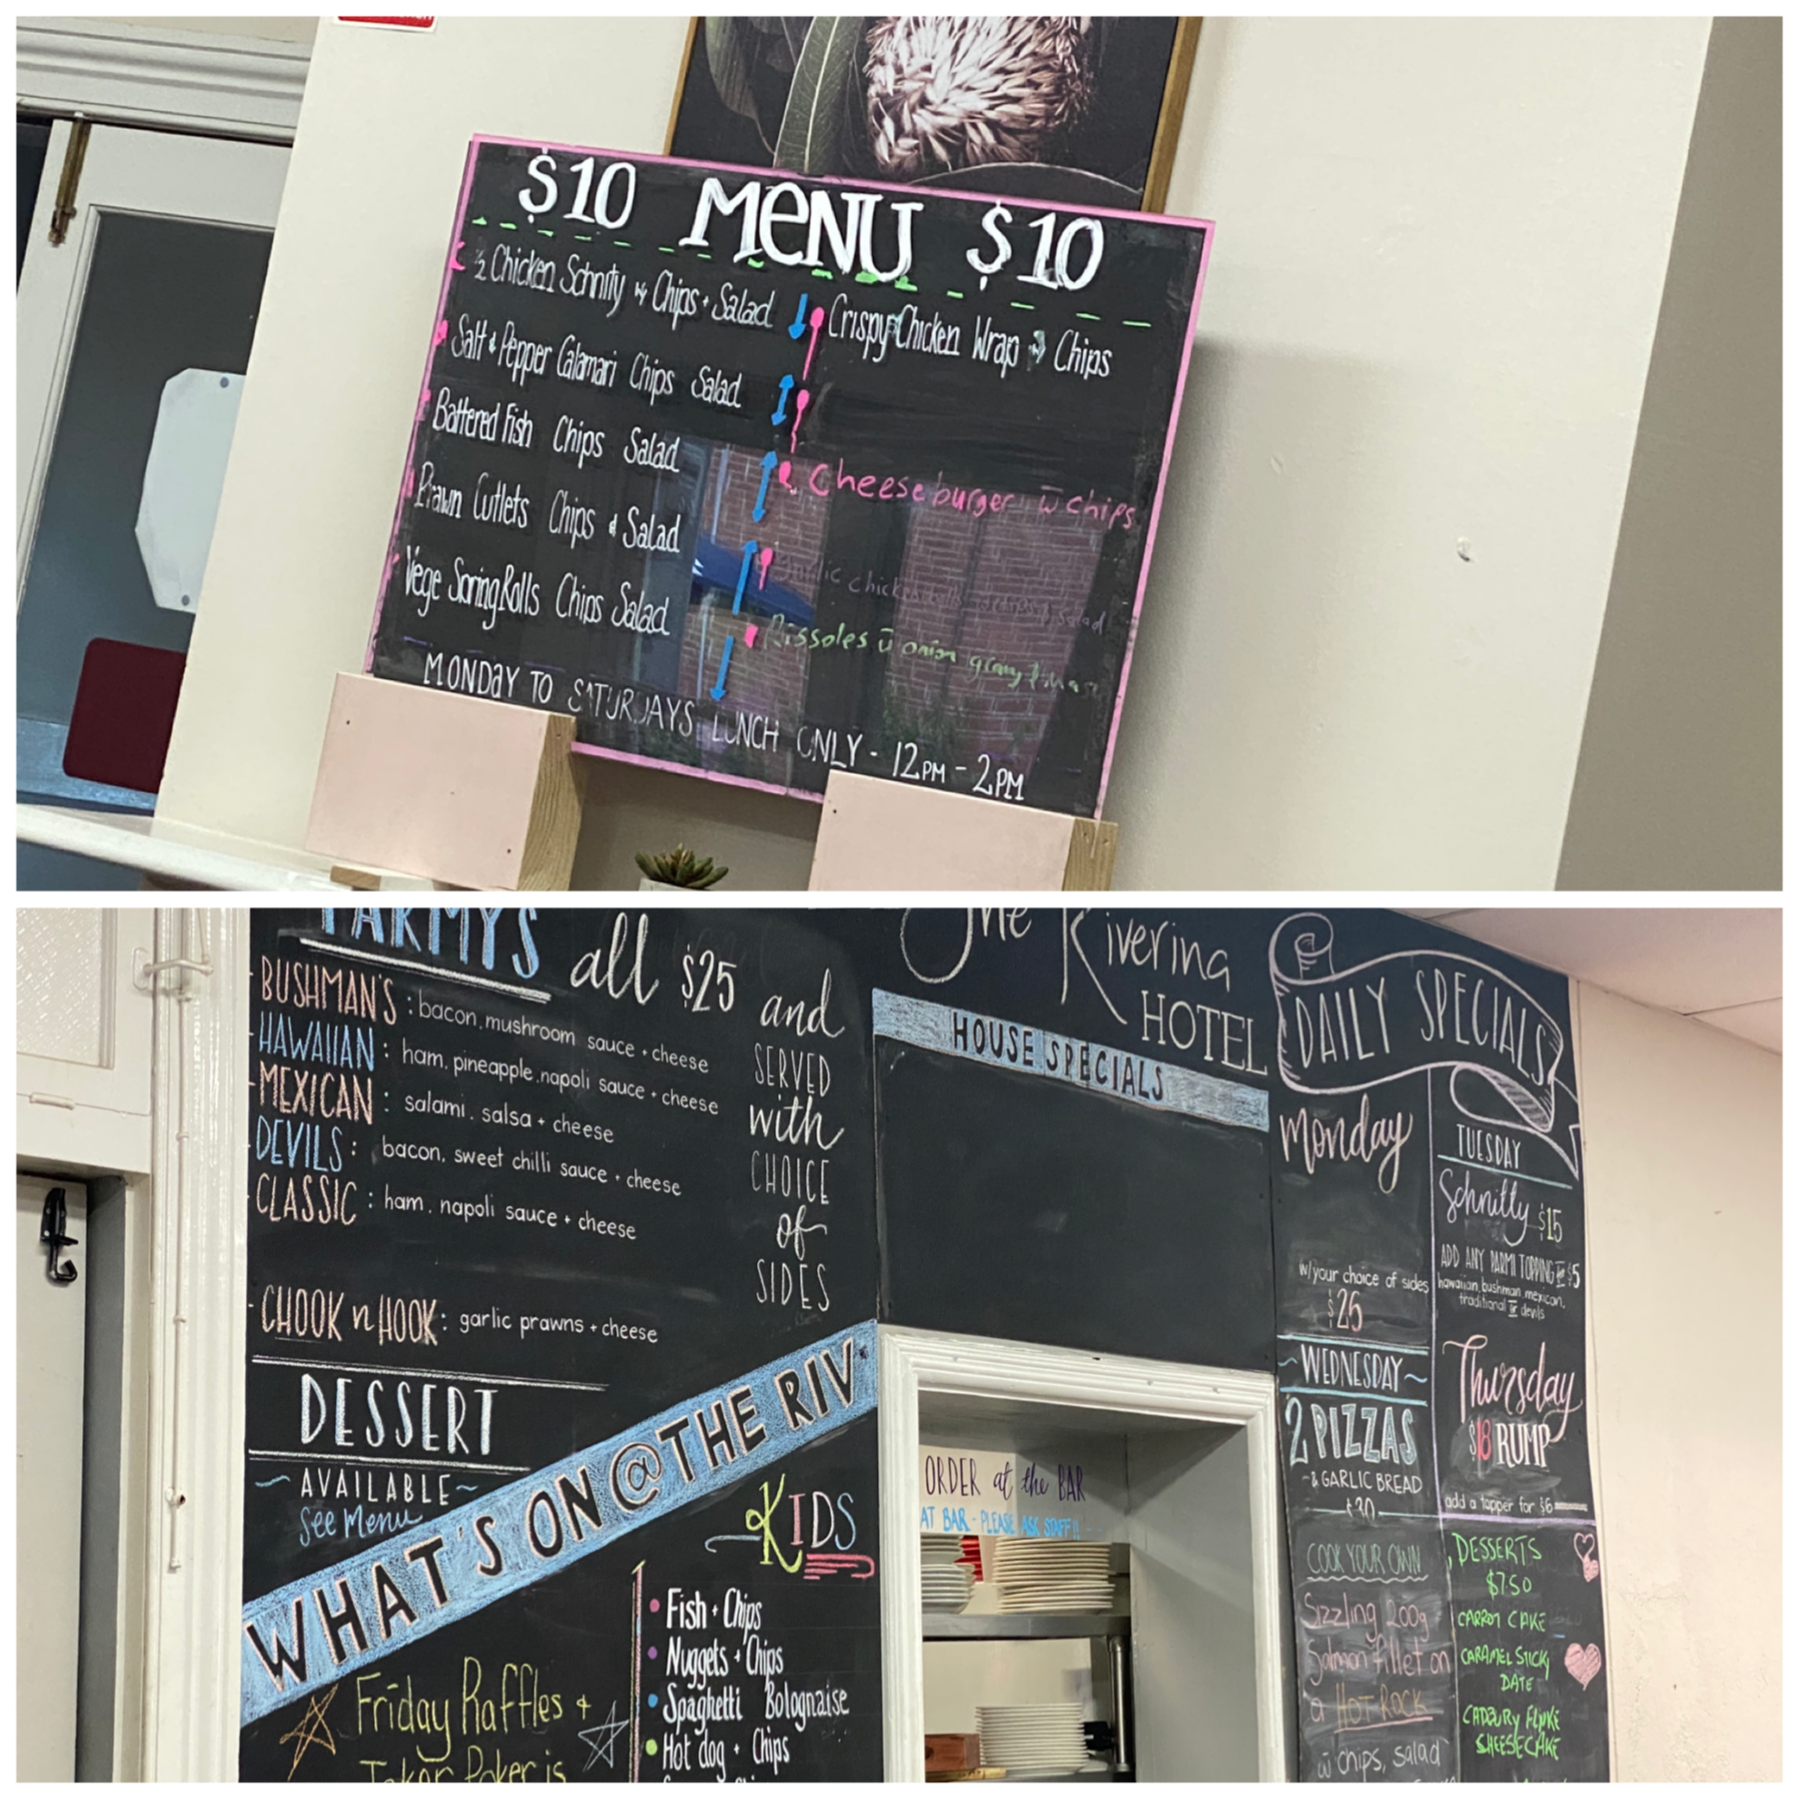 $10 MENU $10
½ Chicken Schnity w Chips + Salad
Salt + Pepper Calamari Chips Salad
Battered Fish Chips Salad
Prawn Cutlets Chips & Salad
Vege Spring Rolls Chips Salad
Crispy Chicken Wrap Chips
Cheeseburger w chips
Rissoles w onion gravy
MONDAY TO SATURDAYS LUNCH ONLY - 12PM - 2PM
PARMYS all $25 and
SERVED
with
CHOICE
of
SIDES
BUSHMAN'S: bacon, mushroom sauce + cheese
HAWAIIAN: ham, pineapple, napoli sauce + cheese
MEXICAN: salami, salsa + cheese
DEVILS: bacon, sweet chilli sauce + cheese
CLASSIC: ham, napoli sauce + cheese
CHOOK n HOOK: garlic prawns + cheese
DESSERT
~AVAILABLE~
See Menu
WHAT'S ON @ THE RIV
Friday Raffles +
Joker Poker is
KIDS
Fish + Chips
Nuggets + Chips
Spaghetti Bolognaise
Hot dog + Chips
The Riverina
HOTEL
HOUSE SPECIALS
ORDER at the BAR
AT BAR - PLEASE ASK STAFF!!
DAILY SPECIALS
Monday
w/your choice of sides
$25
TUESDAY
Schnitty $15
ADD ANY PARMI TOPPING for $5
hawaiian, bushman, mexican,
traditional or devils
~WEDNESDAY~
2 PIZZAS
& GARLIC BREAD
$30
Thursday
$18 RUMP
add a topper for $6
COOK YOUR OWN
Sizzling 200g
Salmon fillet on
a HOT ROCK
w chips, salad
DESSERTS
$7.50
CARROT CAKE
CARAMEL STICKY
DATE
CADBURY FLAKE
SHEESECAKE